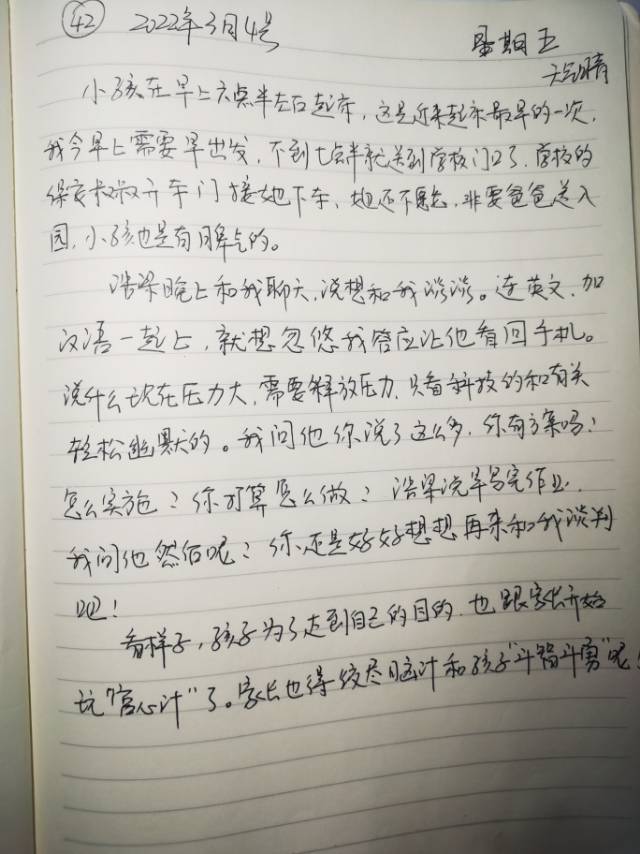 42 2022年3月4号 星期五
天气晴
小孩在早上六点半左右起床,这是近来起床最早的一次,
我今早上需要早出发,不到七点半就送到学校门口了,学校的
保安叔叔开车门接她下车,她还不愿意,非要爸爸送入
园,小孩也是有脾气的。
浩梁晚上和我聊天,说想和我谈谈。连英文,加
汉语一起上,就想忽悠我答应让他看回手机。
说什么现在压力大,需要释放压力,只看科技的和有关
轻松幽默的。我问他你说了这么多,你有方案吗?
怎么实施?你打算怎么做?浩梁说早写完作业,
我问他然后呢?你还是好好想想再来和我谈判
吧!
看样子,孩子为了达到自己的目的,也跟家长开始
玩"宫心计"了。家长也得绞尽脑汁和孩子"斗智斗勇"呢!